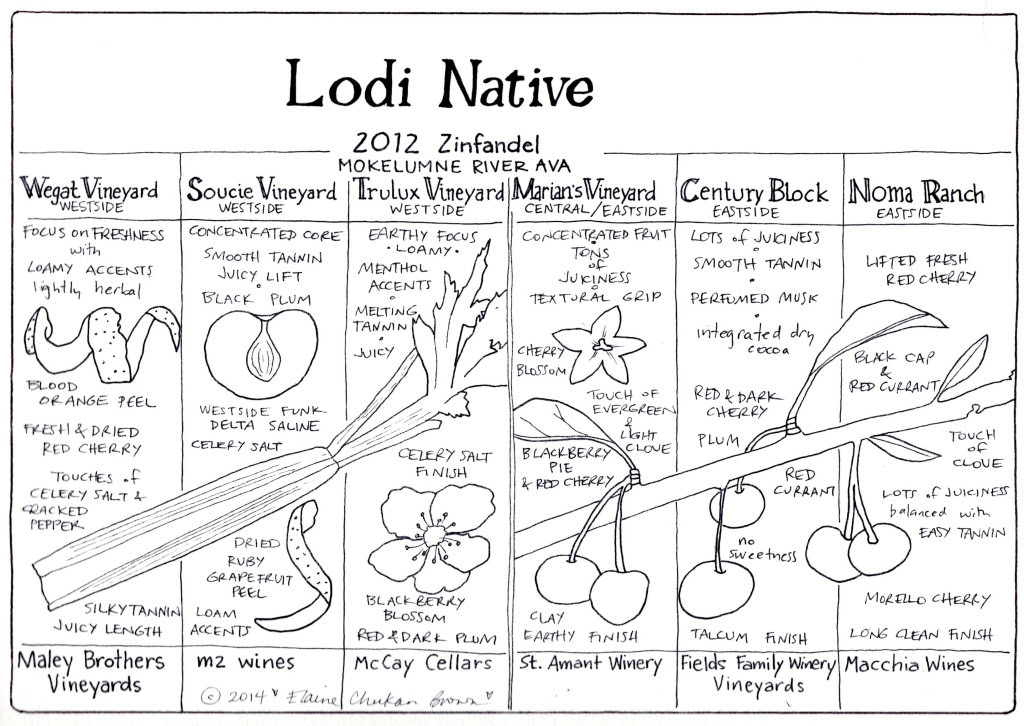 Lodi Native
2012 Zinfandel
MOKELUMNE RIVER AVA
Wegat Vineyard
WESTSIDE
FOCUS on FRESHNESS
with
LOAMY ACCENTS
lightly herbal
BLOOD
ORANGE PEEL
FRESH & DRIED
RED CHERRY
TOUCHES of
CELERY SALT &
CRACKED
PEPPER
SILKY TANNIN
JUICY LENGTH
Maley Brothers
Vineyards
Soucie Vineyard
WESTSIDE
CONCENTRATED CORE
SMOOTH TANNIN
JUICY LIFT
BLACK PLUM
WESTSIDE FUNK
DELTA SALINE
CELERY SALT
DRIED
RUBY
GRAPEFRUIT
PEEL
LOAM
ACCENTS
m2 wines
Trulux Vineyard
WESTSIDE
EARTHY FOCUS
· LOAMY ·
MENTHOL
ACCENTS
MELTING
TANNIN
JUICY
CELERY SALT
FINISH
BLACKBERRY
BLOSSOM
RED & DARK PLUM
McCay Cellars
Marian's Vineyard
CENTRAL/EASTSIDE
CONCENTRATED FRUIT
TONS
of
JUICINESS
TEXTURAL GRIP
CHERRY
BLOSSOM
TOUCH OF
EVERGREEN
&
LIGHT
CLOVE
BLACKBERRY
PIE
& RED CHERRY
CLAY
EARTHY FINISH
St. Amant Winery
Century Block
EASTSIDE
LOTS of JUICINESS
SMOOTH TANNIN
PERFUMED MUSK
integrated dry
cocoa
RED & DARK
CHERRY
PLUM
RED
CURRANT
no
sweetness
TALCUM FINISH
Fields Family Winery
Vineyards
Noma Ranch
EASTSIDE
LIFTED FRESH
RED CHERRY
BLACK CAP
&
RED CURRANT
TOUCH
OF
CLOVE
LOTS of JUICINESS
balanced with
EASY TANNIN
MORELLO CHERRY
LONG CLEAN FINISH
Macchia Wines
© 2014 ♥ Elaine Chukan Brown ♥